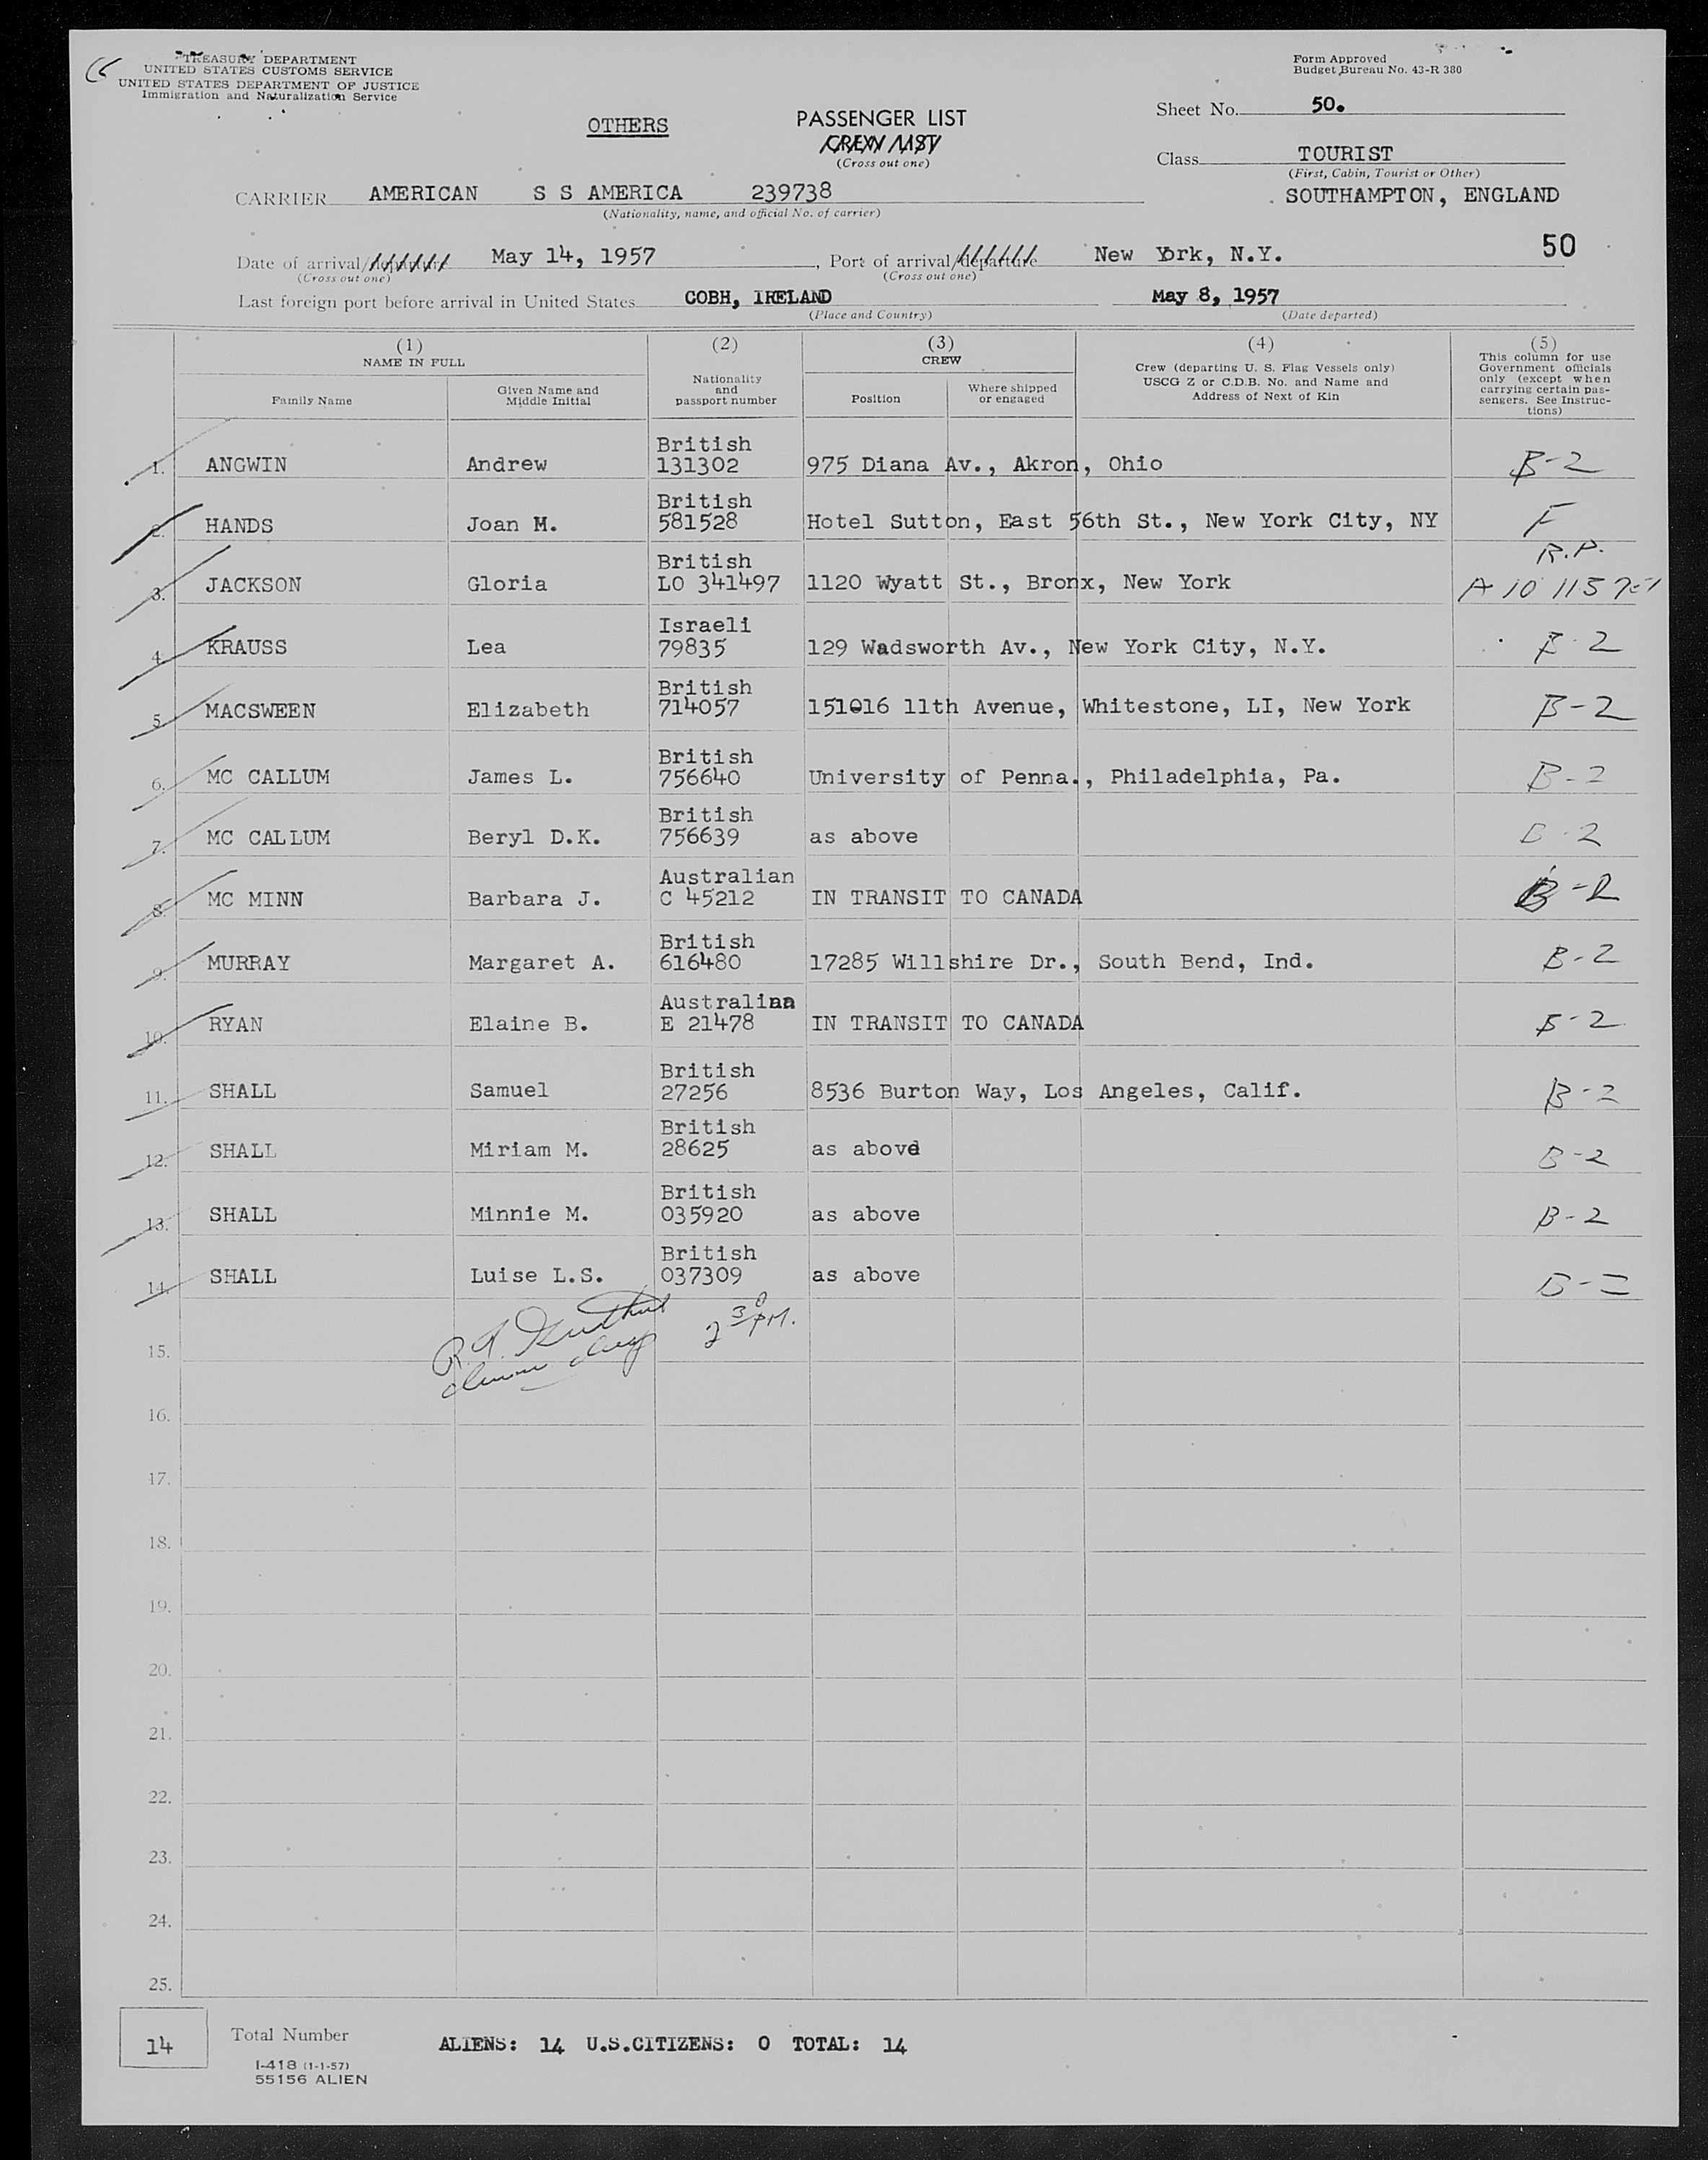 TREASURY DEPARTMENT
UNITED STATES CUSTOMS SERVICE
UNITED STATES DEPARTMENT OF JUSTICE
Immigration and Naturalization Service
Form Approved
Budget Bureau No. 43-R 380
OTHERS
PASSENGER LIST
CREW LIST
(Cross out one)
Sheet No. 50.
Class TOURIST
(First, Cabin, Tourist or Other)
CARRIER AMERICAN S S AMERICA 239738
(Nationality, name, and official No. of carrier)
SOUTHAMPTON, ENGLAND
50
Date of arrival/departure May 14, 1957, Port of arrival/departure New York, N.Y.
(Cross out one) (Cross out one)
Last foreign port before arrival in United States COBH, IRELAND May 8, 1957
(Place and Country) (Date departed)
(1) NAME IN FULL
Family Name
Given Name and Middle Initial
(2) Nationality and passport number
(3) CREW
Position
Where shipped or engaged
(4) Crew (departing U. S. Flag Vessels only) USCG Z or C.D.B. No. and Name and Address of Next of Kin
(5) This column for use Government officials only (except when carrying certain passengers. See Instructions)
1. ANGWIN Andrew British 131302 975 Diana Av., Akron, Ohio B-2
2. HANDS Joan M. British 581528 Hotel Sutton, East 56th St., New York City, NY F
3. JACKSON Gloria British LO 341497 1120 Wyatt St., Bronx, New York R.P. A 10 115
4. KRAUSS Lea Israeli 79835 129 Wadsworth Av., New York City, N.Y. B-2
5. MACSWEEN Elizabeth British 714057 151016 11th Avenue, Whitestone, LI, New York B-2
6. MC CALLUM James L. British 756640 University of Penna., Philadelphia, Pa. B-2
7. MC CALLUM Beryl D.K. British 756639 as above B-2
8. MC MINN Barbara J. Australian C 45212 IN TRANSIT TO CANADA B-2
9. MURRAY Margaret A. British 616480 17285 Willshire Dr., South Bend, Ind. B-2
10. RYAN Elaine B. Australian E 21478 IN TRANSIT TO CANADA B-2
11. SHALL Samuel British 27256 8536 Burton Way, Los Angeles, Calif. B-2
12. SHALL Miriam M. British 28625 as above B-2
13. SHALL Minnie M. British 035920 as above B-2
14. SHALL Luise L.S. British 037309 as above B-2
2 30 PM.
15.
16.
17.
18.
19.
20.
21.
22.
23.
24.
25.
14 Total Number
ALIENS: 14 U.S.CITIZENS: 0 TOTAL: 14
I-418 (1-1-57)
55156 ALIEN